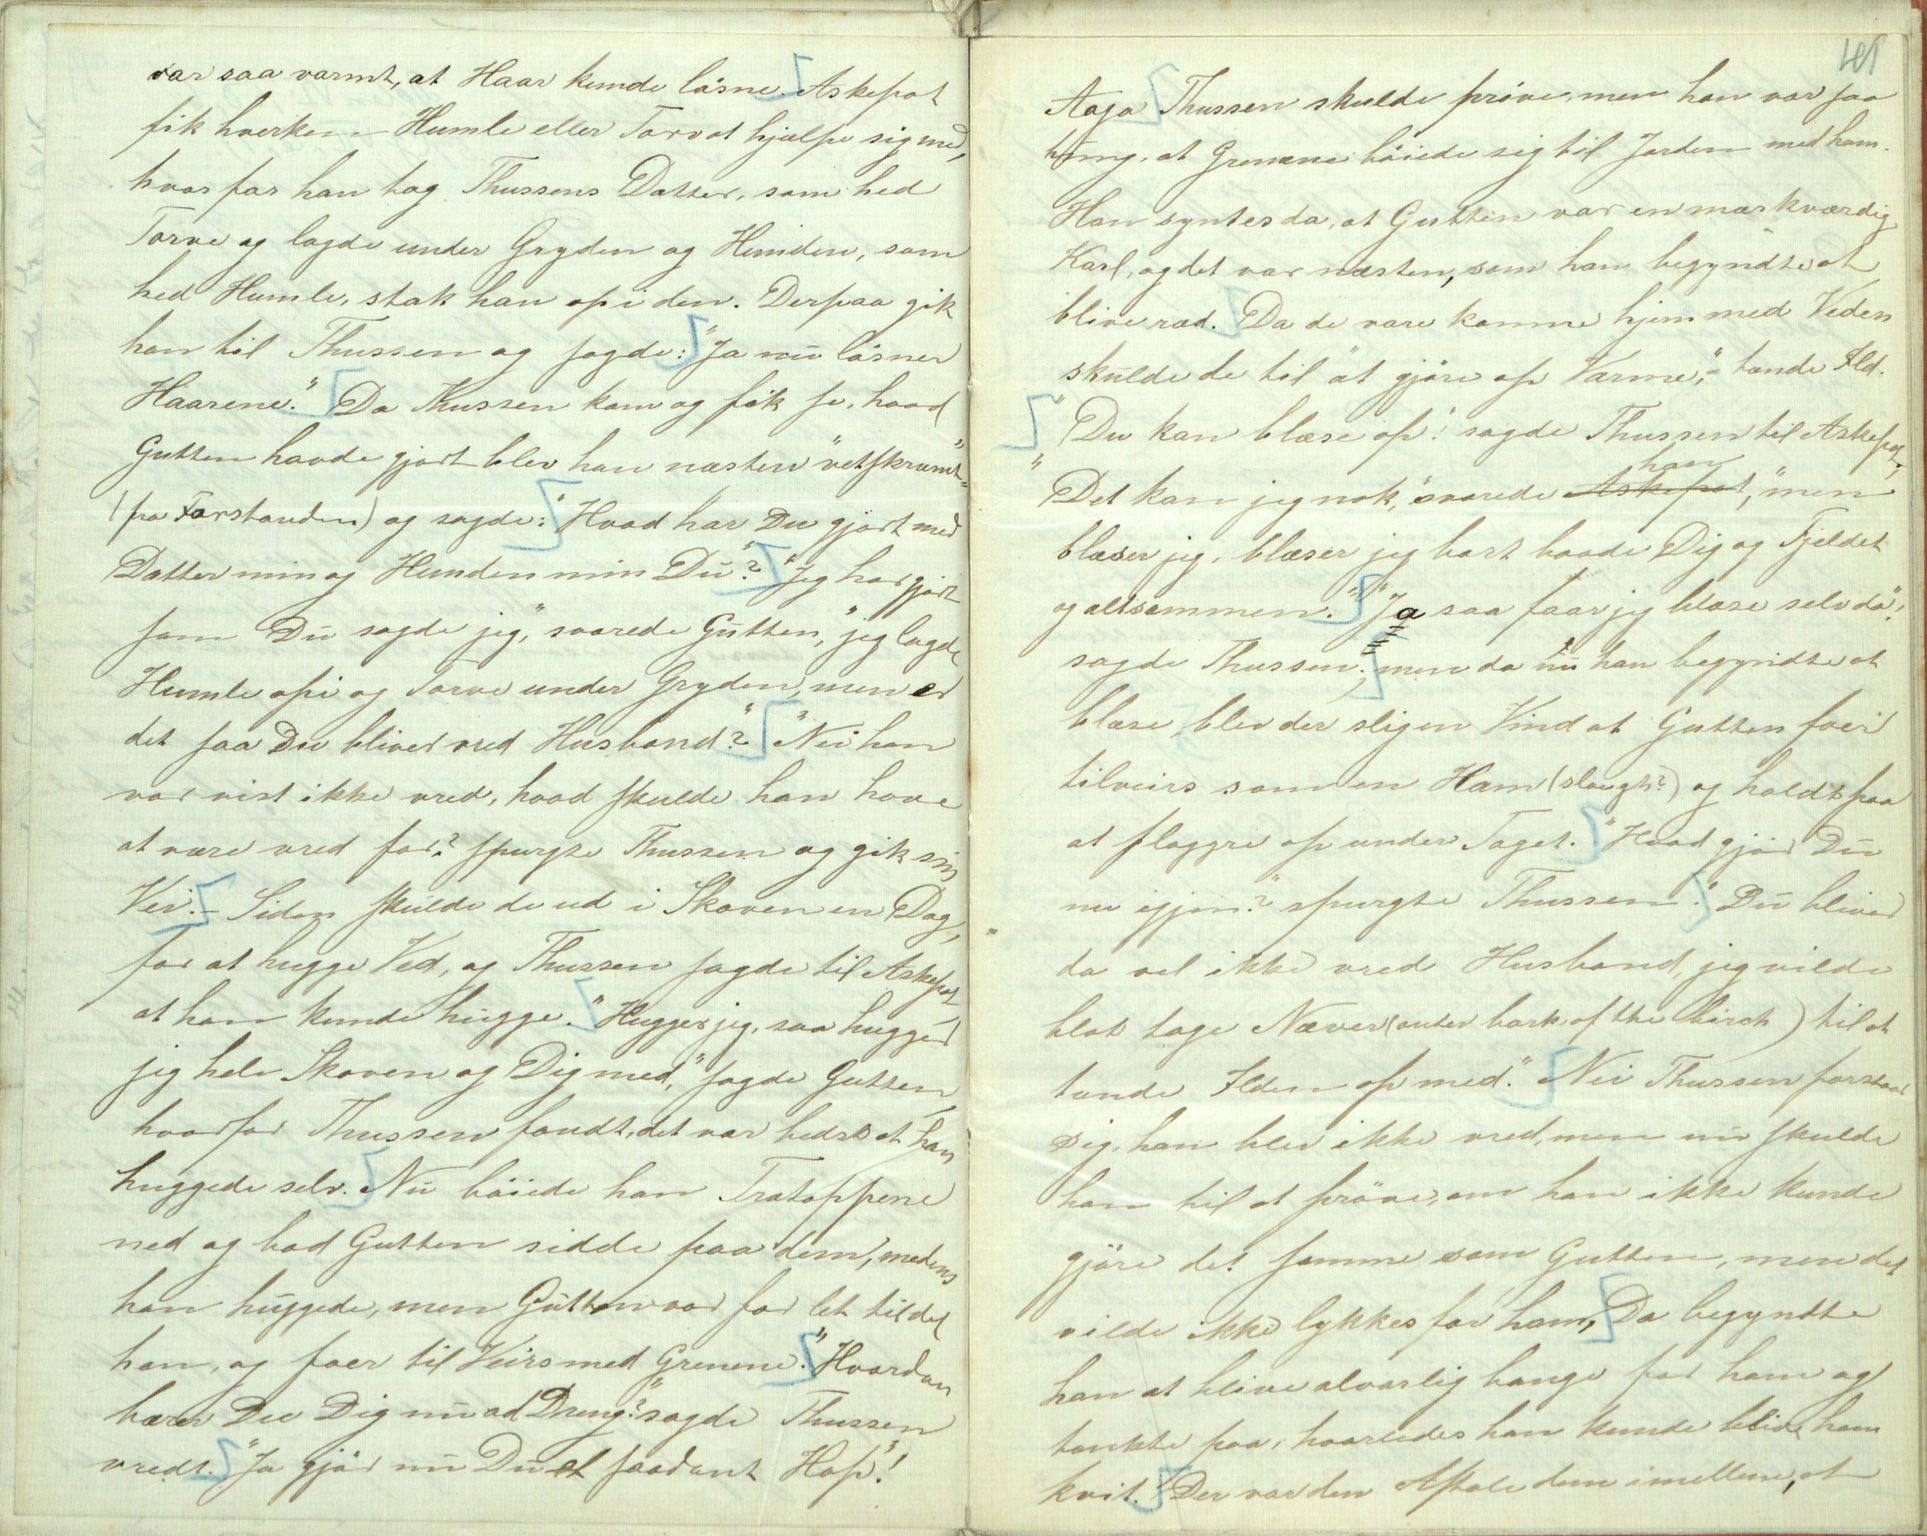 var saa varmt, at Haar kunde låsne. Askepot
fik hverken Humle eller Torv at hjælpe sig med,
hvorfor han tog Thussens Datter, som hed
Torve og lagde under Gryden og Hunden, som
hed Humle, stak han op i den. Derpaa gik
han til Thussen og sagde: "Ja nu låsner
Haarene." Da Thussen kom og fik se, hvad
Gutten havde gjort blev han næsten "vetskræmt"
(fra Forstanden) og sagde: "Hvad har Du gjort med
Datter min og Hunden min Du"? "Jeg har gjort
som Du sagde jeg," svarede Gutten, "jeg lagde
Humle opi og Torve under Gryden, men er
det saa Du bliver vred Husbond?" "Nei han
var vist ikke vred, hvad skulde han have
at være vred for? spurgte Thussen og gik sin
Vei. – Siden skulde de ud i Skoven en Dag,
for at hugge Ved, og Thussen sagde til Askepot,
at han kunde hugge. "Hugger jeg, saa hugger
jeg hele Skoven og Dig med," sagde Gutten,
hvorfor Thussen fandt, det var bedst at han
huggede selv. Nu böiede han Trætoppene
ned og bad Gutten sidde paa dem, medens
han huggede, men Gutten var for let til det
han, og foer til Veirs med Grenene. "Hvordan
bærer Du Dig nu ad Dreng?" sagde Thussen
vredt. "Ja gjör nu Du et saadant Hop"!
101
Aaja Thussen skulde pröve, men han var saa
tung, at Grenene böiede sig til Jorden med ham.
Han syntes da, at Gutten var en mærkværdig
Karl, og det var næsten, som han begyndte at
blive ræd. Da de vare komne hjem med Veden
skulde de til "at gjöre op Varme," – tænde Ild.
"Du kan blæse op"! sagde Thussen til Askepot,
"Det kan jeg nok," svarede Askepot, han "men
blæser jeg, blæser jeg bort baade Dig og Fjeldet
og altsammen." "Ja saa faar jeg blæse selv da"!
sagde Thussen; men da nu han begyndte at
blæse, blev der sligen Vind at Gutten foer
tilveirs som en Ham (slough?) og holdt paa
at flaggre op under Taget. "Hvad gjör Du
nu igjen?" spurgte Thussen. "Du bliver
da vel ikke vred Husbond, jeg vilde
blot tage Næver (outer bark of the birch) til at
tænde Ilden op med." Nei Thussen forstaar
sig, han blev ikke vred, men nu skulde
han til at pröve, om han ikke kunde
gjöre det samme som Gutten, men det
vilde ikke lykkes for ham, Da begyndte
han at blive alvorlig bange for ham og
tænkte paa, hvorledes han kunde blive ham
kvit. Der var den Aftale dem imellem, at